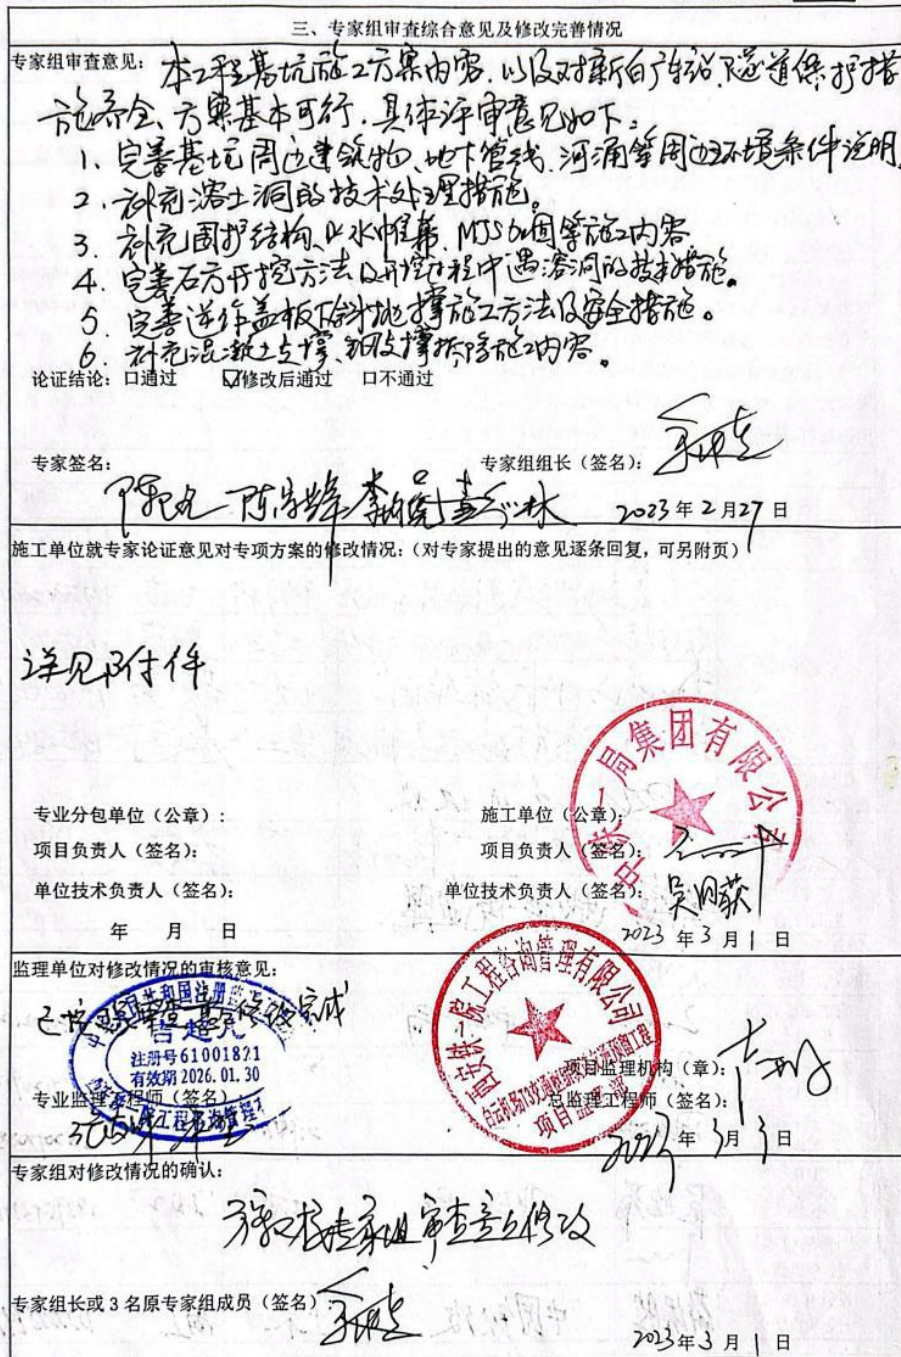 三、专家组审查综合意见及修改完善情况
专家组审查意见：本工程基坑施工方案内容，以及对新白广城际隧道保护措
施齐全、方案基本可行，具体评审意见如下：
1、完善基坑周边建筑物、地下管线、河涌等周边环境条件说明
2、补充溶土洞的技术处理措施。
3、补充围护结构、止水帷幕、MJS加固等施工内容
4、完善石方开挖方法及开挖过程中遇溶洞的技术措施。
5、完善逆作盖板下斜抛撑施工方法及安全措施。
6、补充混凝土支撑、钢支撑拆除施工内容。
论证结论：口通过 ☑修改后通过 口不通过
专家签名： 专家组组长（签名）：
2023年2月27日
施工单位就专家论证意见对专项方案的修改情况：（对专家提出的意见逐条回复，可另附页）
详见附件
中铁一局集团有限公司
专业分包单位（公章）： 施工单位（公章）：
项目负责人（签名）： 项目负责人（签名）：
单位技术负责人（签名）： 单位技术负责人（签名）：
年 月 日 2023年3月1日
监理单位对修改情况的审核意见：
已按专家审查意见修改完成
注册号61001821
有效期2026.01.30
西安铁一院工程咨询管理有限公司
项目监理部
项目监理机构（章）：
专业监理工程师（签名） 总监理工程师（签名）：
2023年3月3日
专家组对修改情况的确认：
方案已按专家组审查意见修改
专家组长或3名原专家组成员（签名）：
2023年3月1日